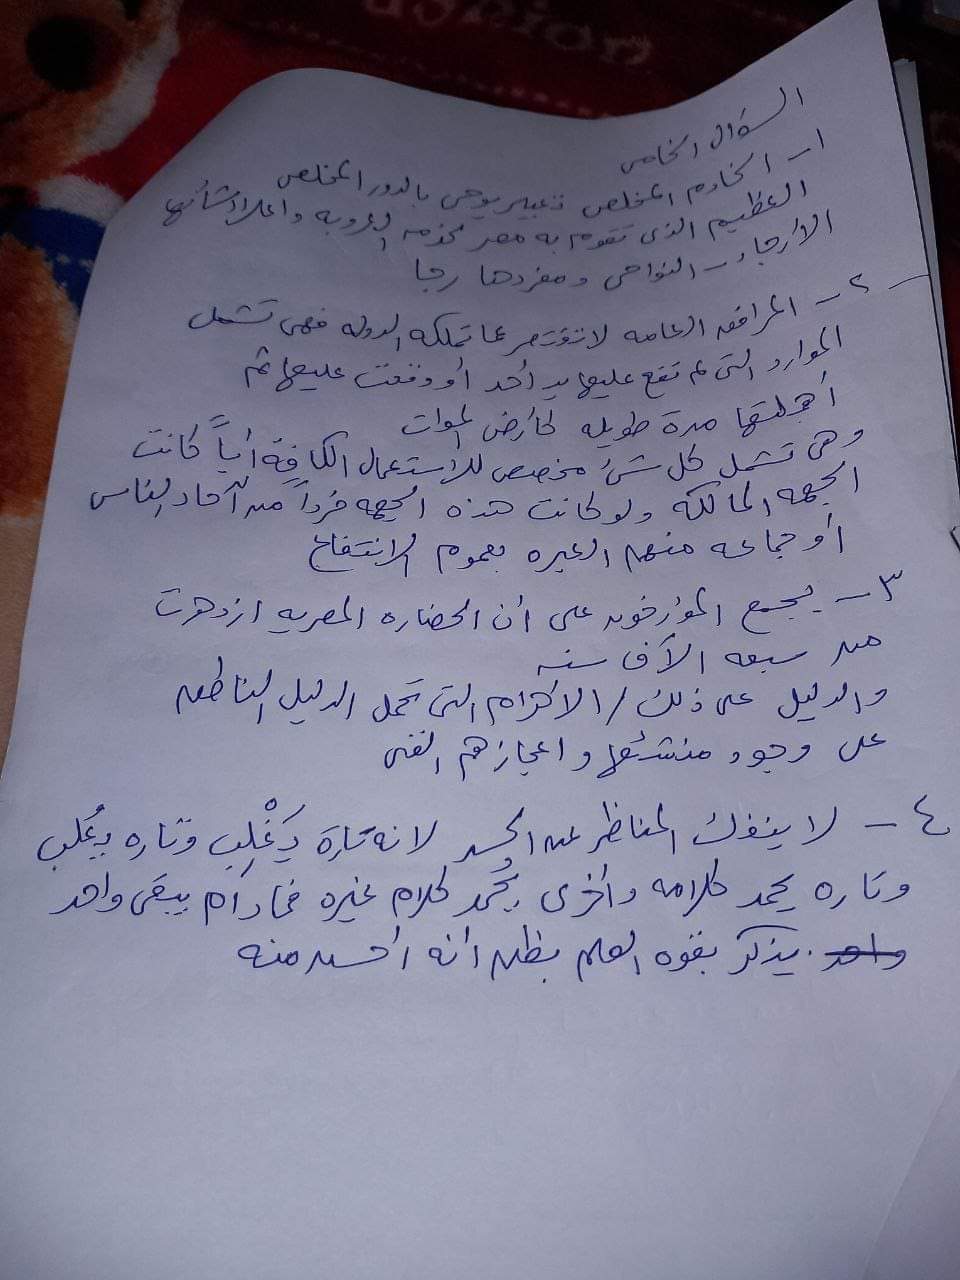 السؤال الخامس
١- الخادم المخلص تعبير يوحى بالدور المخلص
العظيم الذى تقوم به مصر لخدمه العروبه واعلاء شأنها
الأرجاء - النواحى ومفردها رجا
٢- المرافق العامه لا تقتصر عما تملكه الدوله فهى تشمل
الموارد التى لم تقع عليها يد أحد أو وقعت عليها ثم
أهملتها مدة طويله كأرض الموات
وهى تشمل كل شئ مخصص للاستعمال الكافة أياً كانت
الجهه المالكه ولو كانت هذه الجهه فرداً من آحاد الناس
أو جماعه منهم العبره بعموم الانتفاع
٣- يجمع المؤرخون على أن الحضاره المصريه ازدهرت
من سبعه الآف سنه
والدليل على ذلك / الاهرام التى تحمل الدليل الناطق
على وجود منشئها واعجازهم الفنى
٤- لا ينفك المناظر عن الحسد لانه تارة يَغْلِب وتاره يُغلب
وتاره يحمد كلامه وأخرى يُحمد كلام غيره فمادام يبقى واحد
واحد يذكر بقوه العلم يظن أنه أحسن منه